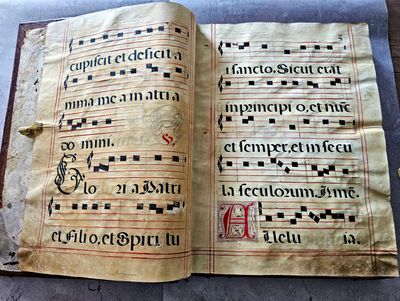 cupiscit et deficit a
nima me a in atri a
do mini. S.
Glo ri a Patri
et Fili o, et Spiri tu
3
i sancto. Sicut erat
inprincipi o, et nũc
et semper, et in secu
la seculorum. Amē.
Allelu ia.